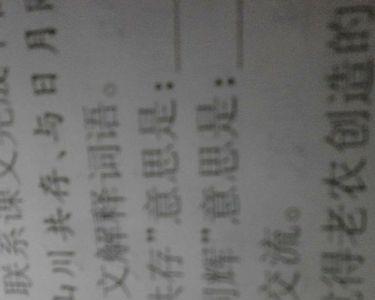 联系课文完成
山川共存、与日月
文解释词语。
共存”意思是：
辉”意思是：
交流。
得老农创造的